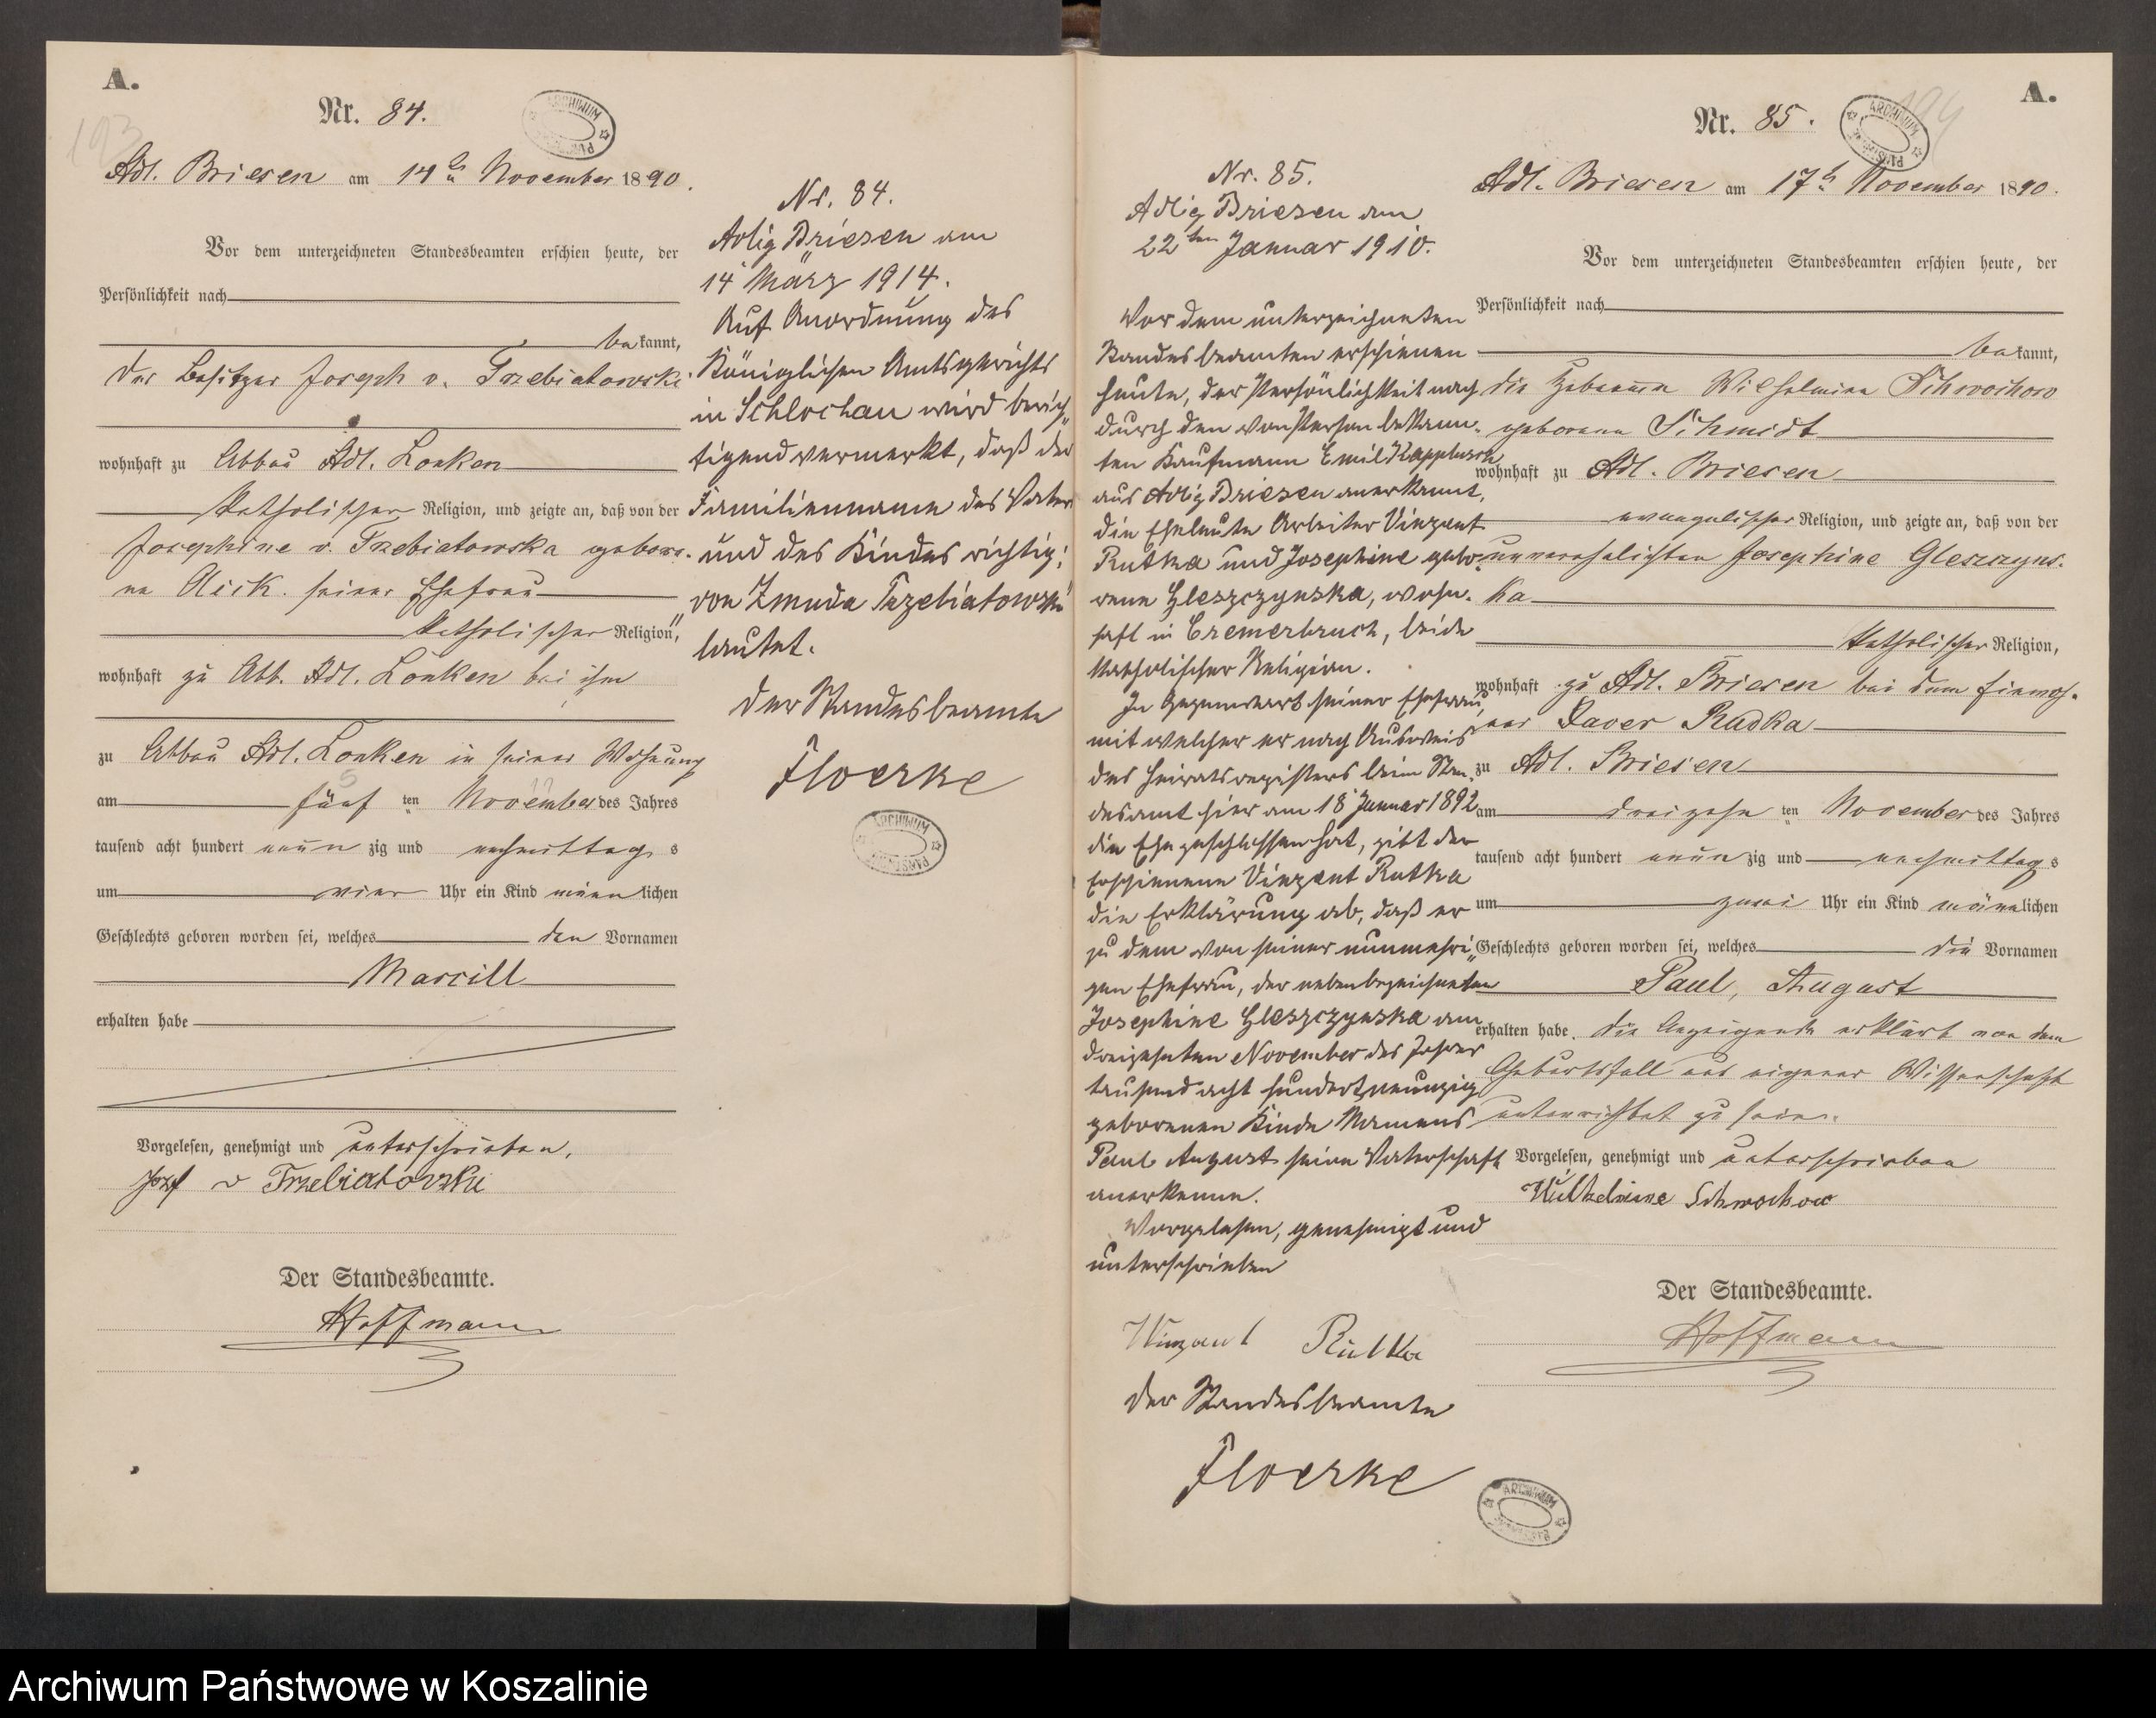 A.
Nr. 84.
193
Adl. Briesen am 14ten November 1890.
Vor dem unterzeichneten Standesbeamten erschien heute, der
Persönlichkeit nach
bekannt,
der Besitzer Joseph v. Trzebiatowski
wohnhaft zu Abbau Adl. Lonken
katholischer Religion, und zeigte an, daß von der
Josephine v. Trzebiatowska gebore-
ne Aick seiner Ehefrau
katholischer Religion,
wohnhaft zu Abb. Adl. Lonken bei ihm
zu Abbau Adl. Lonken in seiner Wohnung
am fünften November des Jahres
tausend acht hundert neunzig und nachmittags
um vier Uhr ein Kind männlichen
Geschlechts geboren worden sei, welches den Vornamen
Marcill
erhalten habe
Vorgelesen, genehmigt und unterschrieben.
Jozef v Trzebiatowzki
Der Standesbeamte.
Hoffmann
Nr. 84.
Adlig Briesen am
14. März 1914.
Auf Anordnung des
Königlichen Amtsgerichts
in Schlochau wird berich„
tigend vermerkt, daß der
Familienname des Vaters
und des Kindes richtig:
„von Zmuda Trzebiatowski"
lautet.
Der Standesbeamte
Floerke
ARCHIWUM
Nr. 85.
Adlig Briesen am
22ten Januar 1910.
Vor dem unterzeichneten
Standesbeamten erschienen
heute, der Persönlichkeit nach
durch den von Person bekann-
ten Kaufmann Emil Klappbusch
aus Adlig Briesen anerkannt,
die Eheleute Arbeiter Vinzent
Rutka und Josephine gebo-
rene Gleszczynska, wohn-
haft in Cremerbruch, beide
katholischer Religion.
In Gegenwart seiner Ehefrau,
mit welcher er nach Ausweis
des Heiratsregisters beim Stan-
desamt hier am 18. Januar 1892
die Ehe geschlossen hat, gibt der
Erschienene Vinzent Rutka
die Erklärung ab, daß er
zu dem von seiner nunmehri„
gen Ehefrau, der nebenbezeichneten
Josephine Gleszczynska am
dreizehnten November des Jahres
tausend acht hundert neunzig
geborenen Kinde Namens
Paul August seine Vaterschaft
anerkenne.
Vorgelesen, genehmigt und
unterschrieben
Vinzant Rutka
Der Standesbeamte
Floerke
A.
Nr. 85.
194
Adl. Briesen am 17ten November 1890.
Vor dem unterzeichneten Standesbeamten erschien heute, der
Persönlichkeit nach
bekannt,
die Hebamme Wilhelmine Schwochow
geborene Schmidt
wohnhaft zu Adl. Briesen
evangelischer Religion, und zeigte an, daß von der
unverehelichten Josephine Gleszczyns-
ka
katholischer Religion,
wohnhaft zu Adl. Briesen bei dem Einwoh-
ner Xaver Rudka
zu Adl. Briesen
am dreizehnten November des Jahres
tausend acht hundert neunzig und nachmittags
um zwei Uhr ein Kind männlichen
Geschlechts geboren worden sei, welches die Vornamen
Paul, August
erhalten habe. Die Anzeigende erklärt von dem
Geburtsfall aus eigener Wissenschaft
unterrichtet zu sein.
Vorgelesen, genehmigt und unterschrieben
Wilhelmine Schwochow
Der Standesbeamte.
Hoffmann
ARCHIWUM
Archiwum Państwowe w Koszalinie